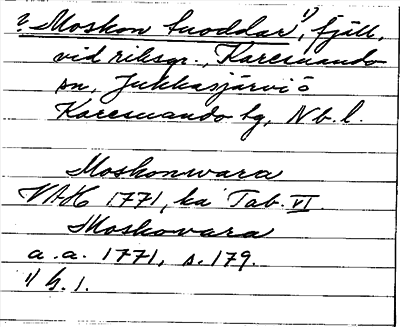 ? Moskon tuoddar¹⁾, fjäll,
vid riksgr., Karesuando
sn, Jukkasjärvi o
Karesuando tg, Nb. l.
Moskonwara
VAH 1771, ka Tab. VI.
Moskovara
a. a. 1771, s. 179.
1) h. 1.